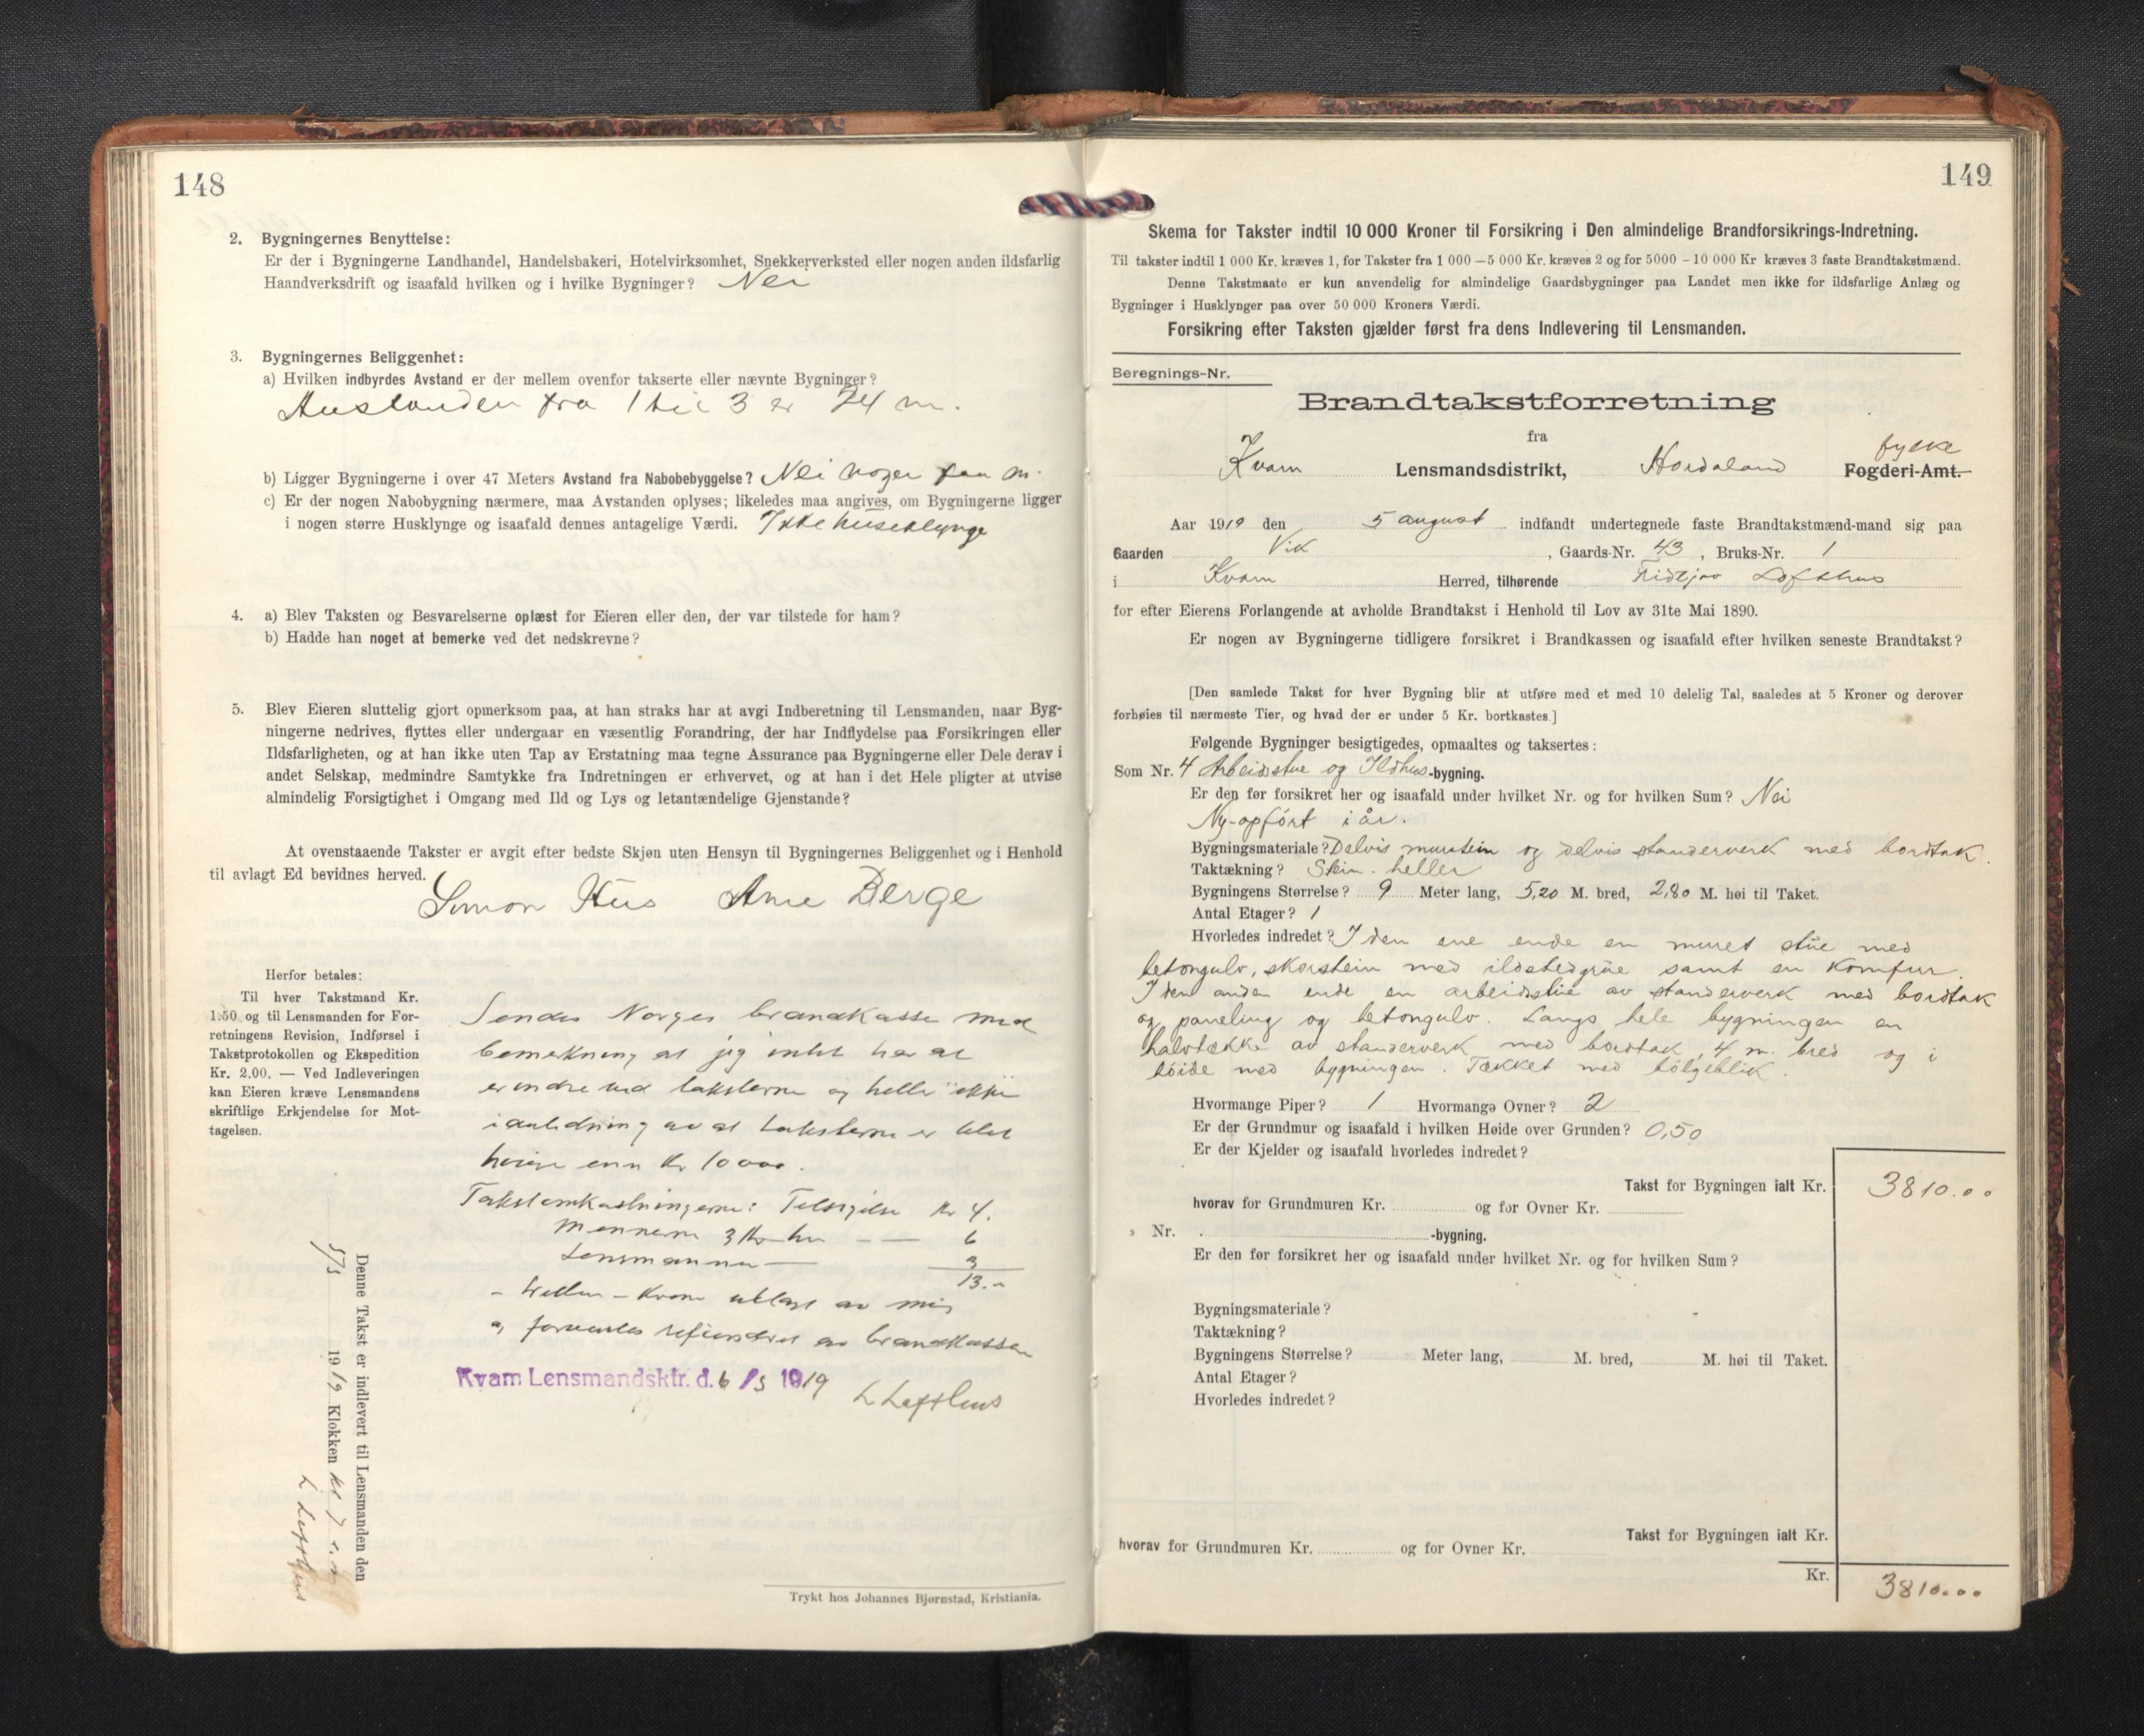 148
2. Bygningernes Benyttelse:
Er der i Bygningerne Landhandel, Handelsbakeri, Hotelvirksomhet, Snekkerverksted eller nogen anden ildsfarlig
Haandverksdrift og isaafald hvilken og i hvilke Bygninger? Nei
3. Bygningernes Beliggenhet:
a) Hvilken indbyrdes Avstand er der mellem ovenfor takserte eller nævnte Bygninger?
Avstanden fra 1 til 3 er 24 m.
b) Ligger Bygningerne i over 47 Meters Avstand fra Nabobebyggelse? Nei noger faa m.
c) Er der nogen Nabobygning nærmere, maa Avstanden oplyses; likeledes maa angives, om Bygningerne ligger
i nogen større Husklynge og isaafald dennes antagelige Værdi. Ikke huseklynge
4. a) Blev Taksten og Besvarelserne oplæst for Eieren eller den, der var tilstede for ham?
b) Hadde han noget at bemerke ved det nedskrevne?
5. Blev Eieren sluttelig gjort opmerksom paa, at han straks har at avgi Indberetning til Lensmanden, naar Byg-
ningerne nedrives, flyttes eller undergaar en væsentlig Forandring, der har Indflydelse paa Forsikringen eller
Ildsfarligheten, og at han ikke uten Tap av Erstatning maa tegne Assurance paa Bygningerne eller Dele derav i
andet Selskap, medmindre Samtykke fra Indretningen er erhvervet, og at han i det Hele pligter at utvise
almindelig Forsigtighet i Omgang med Ild og Lys og letantændelige Gjenstande?
At ovenstaaende Takster er avgit efter bedste Skjøn uten Hensyn til Bygningernes Beliggenhet og i Henhold
til avlagt Ed bevidnes herved.
Simon Hus Arne Berge
Herfor betales:
Til hver Takstmand Kr.
1.50 og til Lensmanden for For-
retningens Revision, Indførsel i
Takstprotokollen og Ekspedition
Kr. 2.00. — Ved Indleveringen
kan Eieren kræve Lensmandens
skriftlige Erkjendelse for Mot-
tagelsen.
Sendes Norges brandkasse med
bemerkning at jeg intet har at
erindre ved taksterne og heller ikke
i anledning av at taksterne er blit
høiere enn Kr 10000.
Takstomkostningerne: Kr 4.
Mennerne 3 Kr hv — — 6
Lensmannen — 3
13.-
- Kroner utlagt av mig
og forventes refundert av brandkassen
Kvam Lensmandsktr. d. 6/8 1919
L Lofthus
Denne Takst er indlevert til Lensmanden den
5/8 1919 Klokken
L Lofthus
Trykt hos Johannes Bjørnstad, Kristiania.
149
Skema for Takster indtil 10 000 Kroner til Forsikring i Den almindelige Brandforsikrings-Indretning.
Til takster indtil 1 000 Kr. kræves 1, for Takster fra 1 000 — 5 000 Kr. kræves 2 og for 5000 - 10 000 Kr kræves 3 faste Brandtakstmænd.
Denne Takstmaate er kun anvendelig for almindelige Gaardsbygninger paa Landet men ikke for ildsfarlige Anlæg og
Bygninger i Husklynger paa over 50 000 Kroners Værdi.
Forsikring efter Taksten gjælder først fra dens Indlevering til Lensmanden.
Beregnings-Nr.
Brandtakstforretning
fra
fylke
Kvam Lensmandsdistrikt, Hordaland Fogderi-Amt.
Aar 1919 den 5 august indfandt undertegnede faste Brandtakstmænd-mand sig paa
Gaarden Vik, Gaards-Nr. 43, Bruks-Nr. 1
i Kvam Herred, tilhørende Fridtjov Lofthus
for efter Eierens Forlangende at avholde Brandtakst i Henhold til Lov av 31te Mai 1890.
Er nogen av Bygningerne tidligere forsikret i Brandkassen og isaafald efter hvilken seneste Brandtakst?
[Den samlede Takst for hver Bygning blir at utføre med et med 10 delelig Tal, saaledes at 5 Kroner og derover
forhøies til nærmeste Tier, og hvad der er under 5 Kr. bortkastes.]
Følgende Bygninger besigtigedes, opmaaltes og taksertes:
Som Nr. 4 Arbeidsstue og Ildhus-bygning.
Er den før forsikret her og isaafald under hvilket Nr. og for hvilken Sum? Nei
Ny-opført i år.
Bygningsmateriale? Delvis murstein og delvis standerverk med bordtak.
Taktækning? Stein-heller
Bygningens Størrelse? 9 Meter lang, 5,20 M. bred, 2,80 M. høi til Taket.
Antal Etager? 1
Hvorledes indredet? I den ene ende en muret stue med
betongulv, skorstein med ildstedgrue samt en komfur.
I den anden ende en arbeidsstue av standerverk med bordtak
og paneling og betongulv. Langs hele bygningen en
halvtekke av standerverk med bordtak, 4 m. bred og i
høide med bygningen. Tækket med bølgeblik.
Hvormange Piper? 1 Hvormange Ovner? 2
Er der Grundmur og isaafald i hvilken Høide over Grunden? 0,50
Er der Kjelder og isaafald hvorledes indredet?
Takst for Bygningen ialt Kr. 3810.00
hvorav for Grundmuren Kr. og for Ovner Kr.
Nr. -bygning.
Er den før forsikret her og isaafald under hvilket Nr. og for hvilken Sum?
Bygningsmateriale?
Taktækning?
Bygningens Størrelse? Meter lang, M. bred, M. høi til Taket.
Antal Etager?
Hvorledes indredet?
Takst for Bygningen ialt Kr.
hvorav for Grundmuren Kr. og for Ovner Kr.
Kr. 3810.00